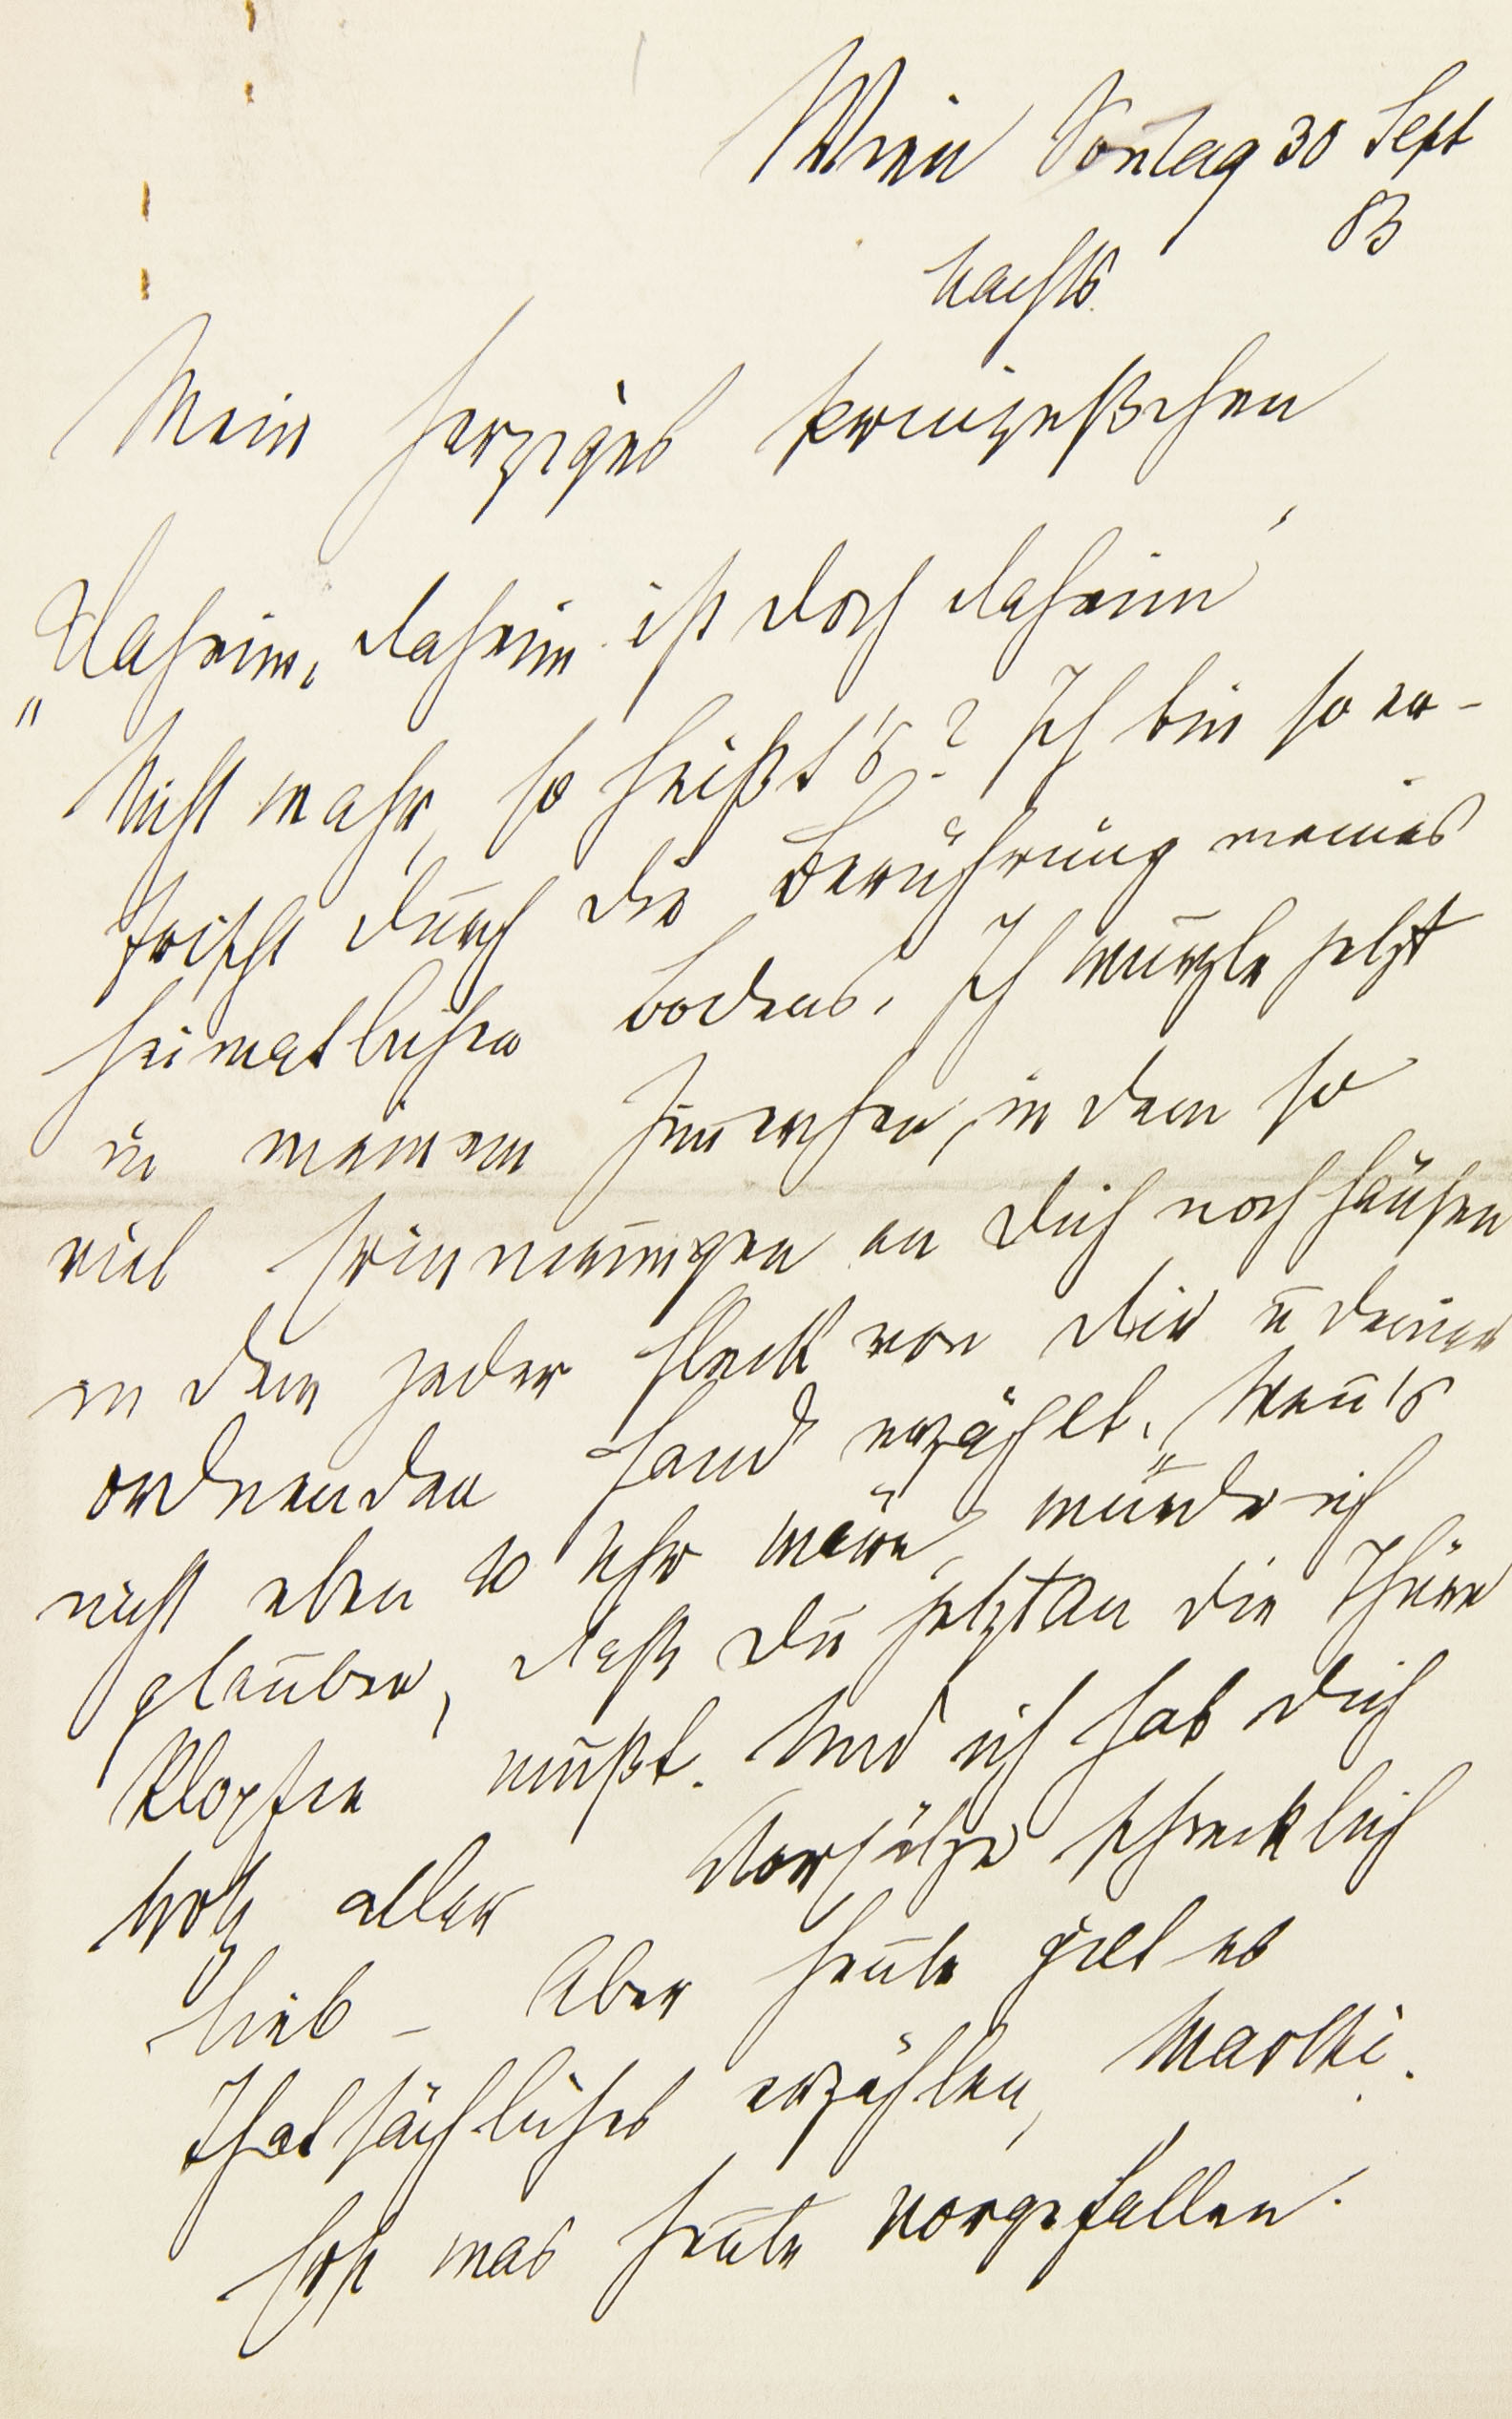 Wien Sontag 30 Sept
83
Nachts.
Mein herziges Prinzeßchen
„Daheim, daheim ist doch daheim‘
Nicht wahr, so heißt's? Ich bin so er-
frischt durch die Berührung meines
heimatlichen Bodens. Ich wurzle jetzt
in meinem Zimerchen, in dem so
viel Erinnerungen an Dich noch hausen
in dem jeder Fleck von Dir u Deiner
ordnenden Hand erzählt. Wenn's
nicht eben 10 Uhr wäre, würde ich
glauben, daß Du jetzt an die Thüre
klopfen mußt. Und ich hab Dich
trotz aller Vorsätze schrecklich
lieb – Aber heute gilt es
Thatsächliches erzählen, Marthi.
Erst was heute vorgefallen.